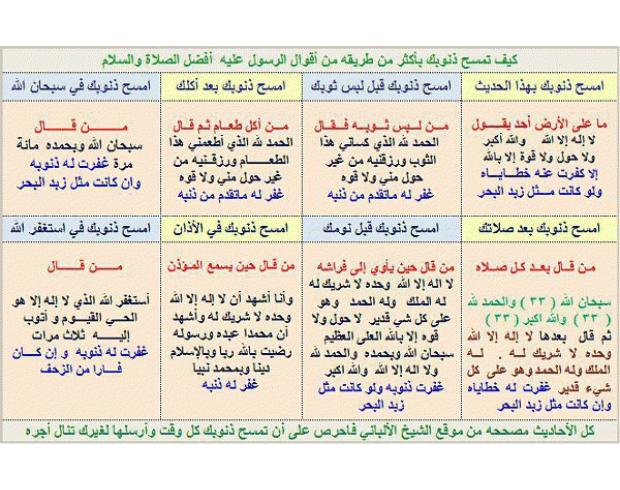 كيف تمسح ذنوبك بأكثر من طريقه من أقوال الرسول عليه أفضل الصلاة والسلام
امسح ذنوبك بهذا الحديث
ما على الأرض أحد يقـــول
لا إله إلا الله والله أكبر
ولا حول ولا قوة إلا بالله
إلا كفرت عنه خطايـــاه
ولو كانت مـــثل زبد البحر
امسح ذنوبك قبل لبس ثوبك
مـــن لـــبس ثـــوبـــه فـــقـــال
الحمد لله الذي كساني هذا
الثوب ورزقنيه من غير
حول مني ولا قوه
غفر له ماتقدم من ذنبه
امسح ذنوبك بعد أكلك
مـــن أكل طعـــام ثـــم قـــال
الحمد لله الذي أطعمني هذا
الطعـــــام ورزقنيـــه من
غير حول مني ولا قوه
غفر له ماتقدم من ذنبه
امسح ذنوبك في سبحان الله
مـــــن قـــــــال
سبحان الله وبحمده مائة
مرة غفرت له ذنوبه
وان كانت مثل زبد البحر
امسح ذنوبك بعد صلاتك
من قـــال بعـــد كـــل صـــلاه
سبحان الله ( ٣٣ ) والحمد لله
( ٣٣ ) والله اكبر ( ٣٣ )
ثم قال بعدها لا إله إلا الله
وحده لا شريك لـــه . لـــه
الملك وله الحمد وهو على كل
شيء قدير غفرت له خطاياه
وإن كانت مثل زبد البحر
امسح ذنوبك قبل نومك
من قال حين يأوي إلى فراشه
لا إله إلا الله وحده لا شريك له
له الملك وله الحمد وهو
على كل شي قدير لا حول ولا
قوه إلا بالله العلي العظيم
سبحان الله وبحمده والحمد لله
ولا اله إلا الله والله اكبر
غفرت ذنوبه ولو كانت مثل
زبد البحر
امسح ذنوبك في الأذان
من قال حين يسمع المـــؤذن
وأنا أشهد أن لا إله إلا الله
وحده لا شريك له وأشهد
أن محمدا عبده ورسوله
رضيت بالله ربا وبالإسلام
دينا وبمحمد نبيا
غفر له ذنبه
امسح ذنوبك في استغفر الله
مـــــن قـــــــال
أستغفر الله الذي لا إله إلا هو
الحـــي القيـــوم و أتوب
إليـــــه ثلاث مرات
غفرت له ذنوبه و إن كـــان
فـــارا من الزحف
كل الأحاديث مصححه من موقع الشيخ الألباني فاحرص على أن تمسح ذنوبك كل وقت وأرسلها لغيرك تنال أجره